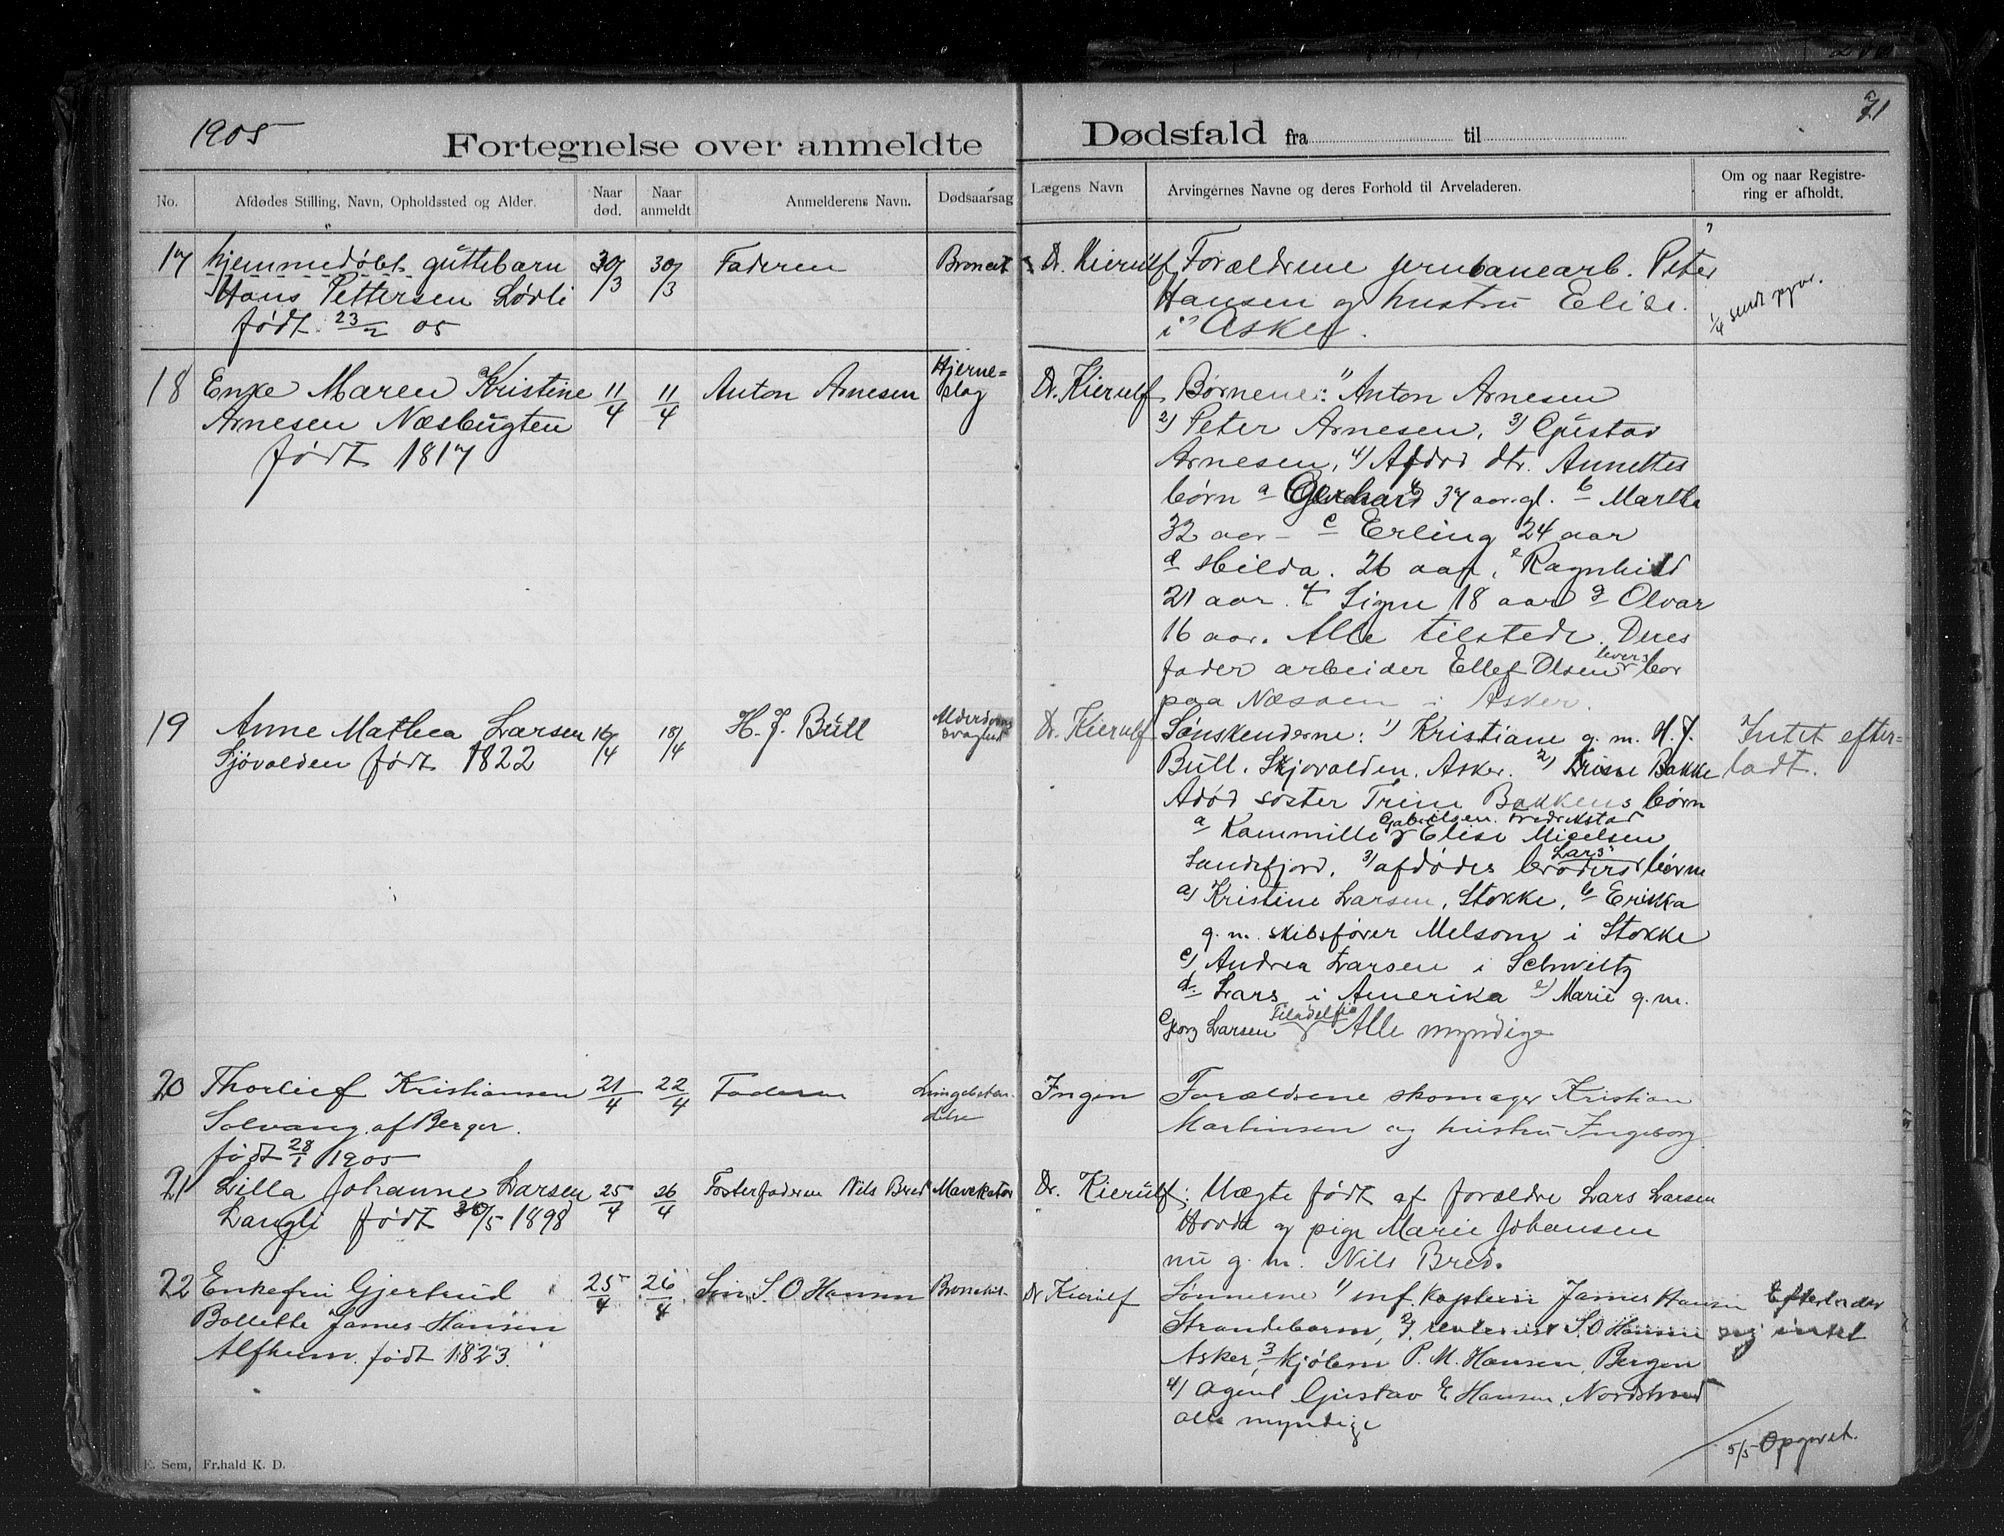 1905
71
Fortegnelse over anmeldte Dødsfald fra til
No.
Afdødes Stilling, Navn, Opholdssted og Alder.
Naar død.
Naar anmeldt
Anmelderens Navn.
Dødsaarsag
Lægens Navn
Arvingernes Navne og deres Forhold til Arveladeren.
Om og naar Registre-
ring er afholdt.
17 hjemmedøbt guttebarn 30/3 30/3 Faderen Dr. Kierulf Forældrene jernbanearb. Peter
Hans Pettersen Lødli Hansen og hustru Elise
født 23/2 05 i Asker.
1/4 sendt
18 Enke Maren Kristine 11/4 11/4 Anton Arnesen Hjerne= Dr. Kierulf Børnene: 1) Anton Arnesen
slag
Arnesen Næsbugten 2) Peter Arnesen, 3) Gustav
født 1817 Arnesen, 4) Afdød dtr. Annettes
børn a Gerhard 37 aar gl. b Marthe
32 aar - c Erling 24 aar
d Hilda. 26 aar, e Ragnhild
21 aar. f Signe 18 aar g Olvar
16 aar. Alle tilstede. Deres
fader arbeider Ellef Olsen levers bor
paa Næsøen i Asker.
19 Anne Mathea Larsen 16/4 18/4 H. J. Bull Alderdoms Dr. Kierulf Sønskenderne: 1) Kristiane g. m. H. J. Intet efter=
svaghed
Sjøvolden født 1822 Bull. Skjøvolden, Asker. 2) Bakke ladt.
Adød søster Trine Bakkens børn
a Kammilla Gabrielsen Fredrikstad Elise Mielsen
Sandefjord, 3) afdødes broders Lars' børn
a) Kristine Larsen, Stokke, b Erikka
g. m. skibsfører Melsom i Stokke
c) Andrea Larsen i Schveitz
d. Lars i Amerika e) Marie g. m.
Georg Larsen Filadelfia Alle myndige
20 Thorleif Kristiansen 21/4 22/4 Faderen Lungebetæn- Ingen Forældrene skomager Kristian
delse
Solvang af Berger. Martinsen og hustru Ingeborg
født 28/1 1905
21 Lilla Johanne Larsen 25/4 26/4 Fosterfaderen Nils Bred Mavekatar Dr. Kierulf; Uægte født af forældre Lars Larsen
Langli født 30/5 1898 og pige Marie Johansen
nu g. m. Nils Bred.
22 Enkefru Gjertrud 25/4 26/4 Søn S. O Hansen Dr Kierulf Sønnerne 1) inf. kaptein James Hansen Efterlader
Bollette James Hansen Strandebarm, 2) S. O Hansen sig intet
Alfheim. født 1823. Asker, 3 P. M. Hansen, Bergen
4) Agent Gustav E Hansen, Nordstrand
alle myndige
5/5 Opgivet.
E. Sem, Fr.hald K. D.